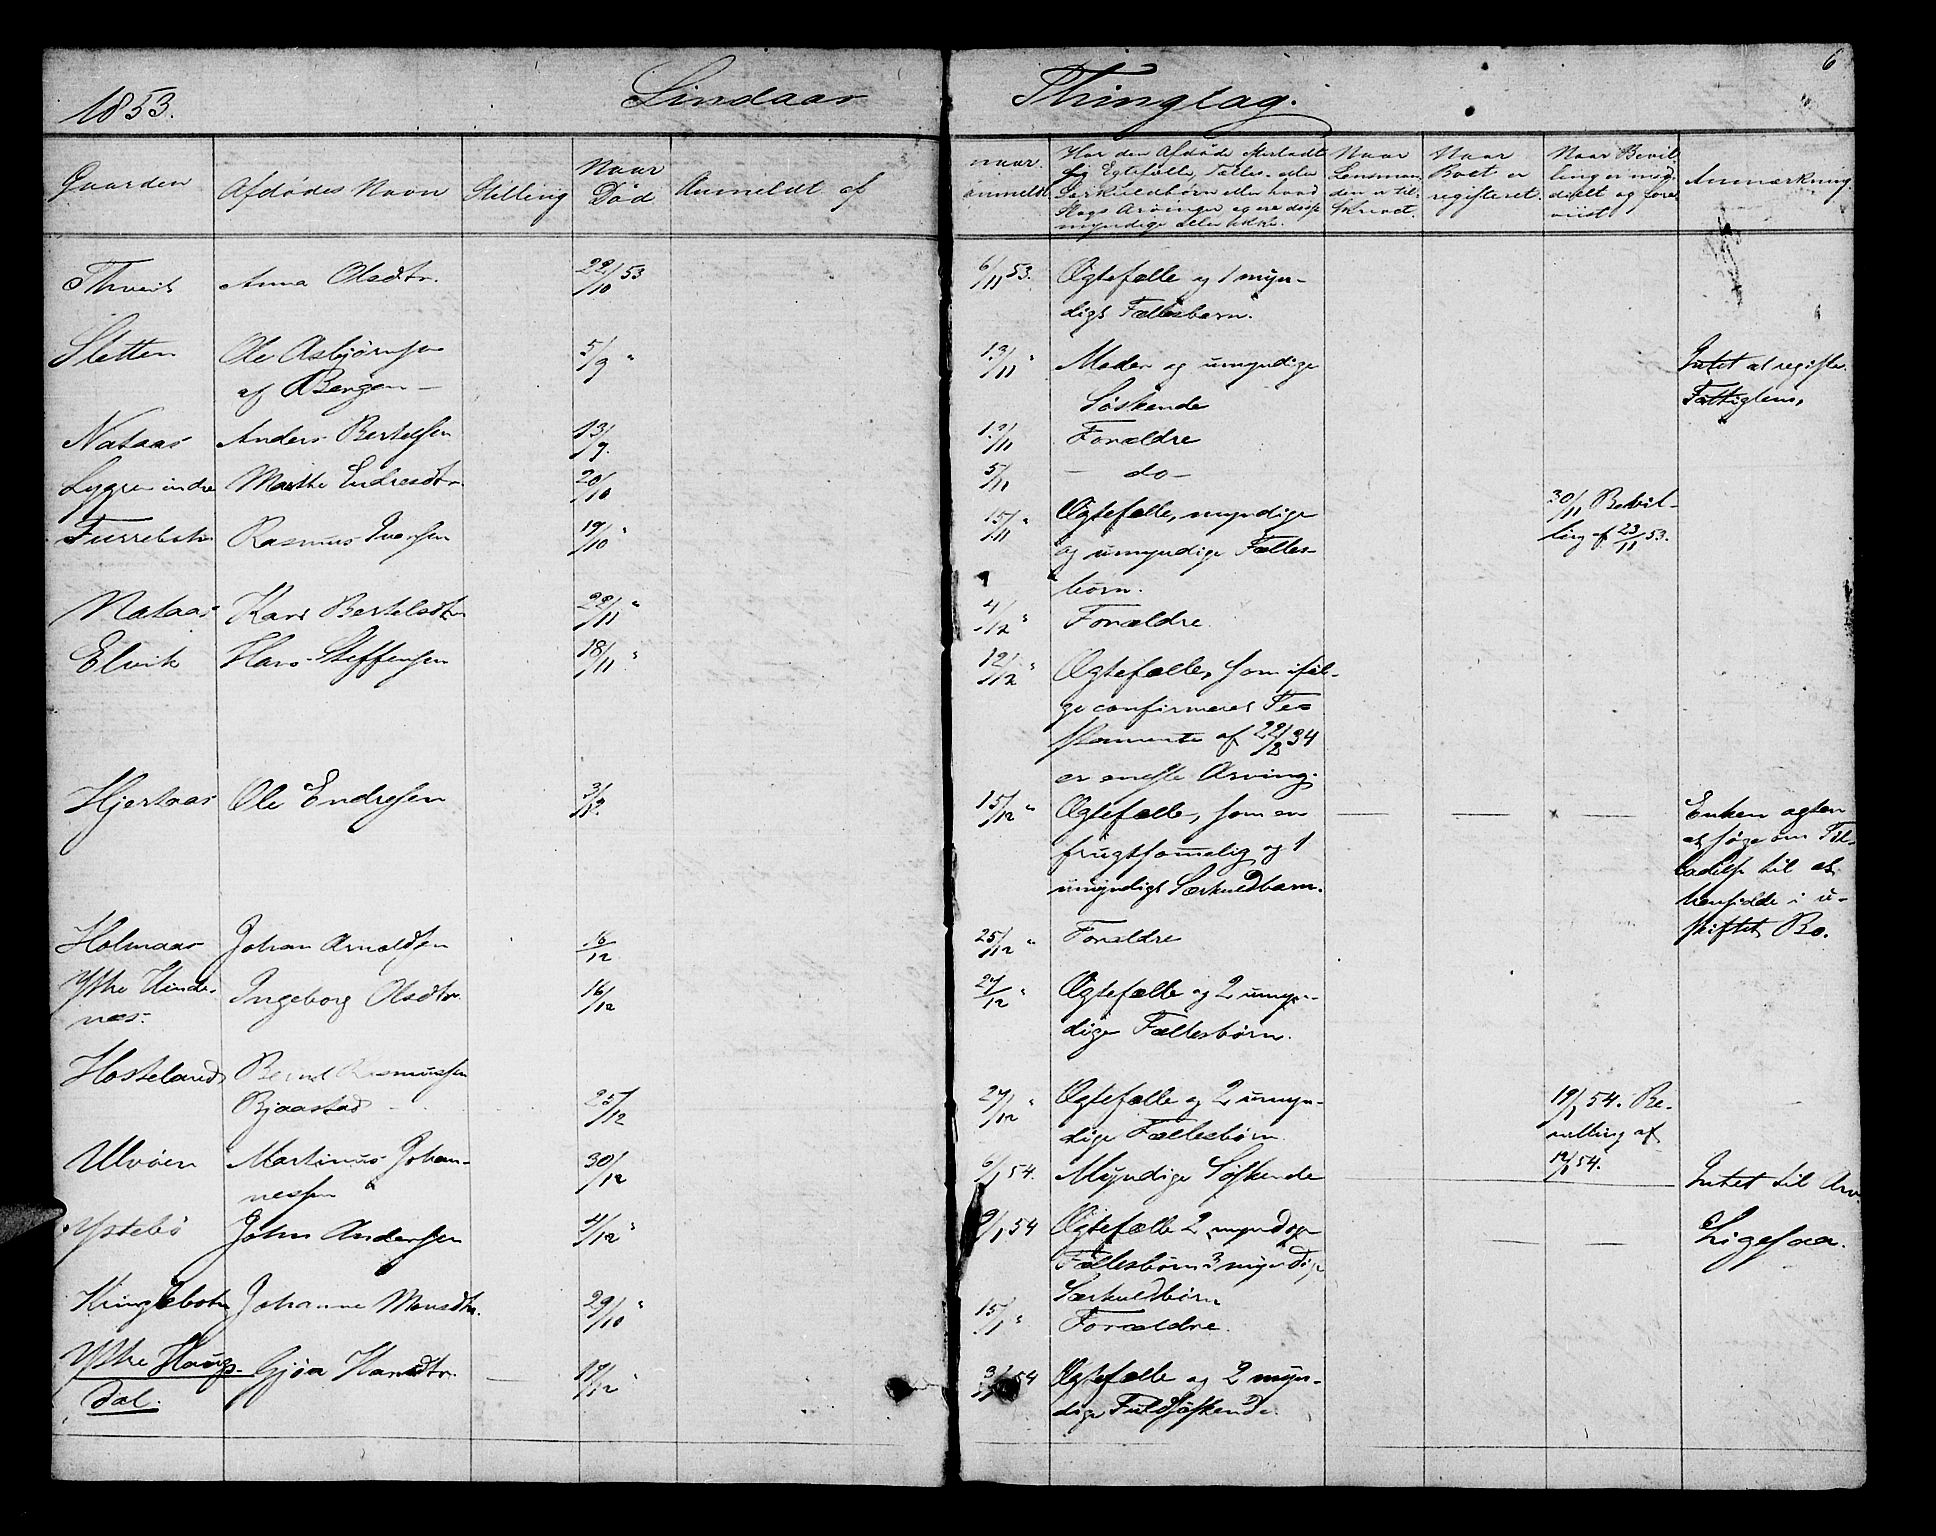 6
1853. Lindaas Thinglag.
Gaarden | Afdødes Navn | Stilling | Naar Død | Anmeldt af | naar anmeldt. | Har den Afdøde efterladt sig Egtefælle, Fælles- eller Særkuldbørn eller hvad Slags Arvinger, og ere disse myndige eller ikke. | Naar Lensmanden er tilskrevet. | Naar Boet er registreret. | Naar Bevilling er meddelt og foreviist | Anmærkning.
Thveit Anna Olsdtr. 22/10 53 6/11 53. Ægtefælle og 1 myn-
digt Fællesbarn.
Sletten Ole Asbjørnsen 5/9 " 13/11 " Moder og umyndige Intet at registre.
af Bergen — Søskende Fattiglem,
Nataas Anders Bertelsen 13/9. 13/11 Forældre
Lygre indre Marthe Endresdtr. 20/10 5/11 — do —
Furrebotn Rasmus Iversen 19/10 " 15/11 " Ægtefælle, myndige 30/11 Bevil-
og umyndige Fælles- ling af 23/11 53.
børn.
Nataas Kari Bertelsdtr 22/11 " 4/12 " Forældre.
Elvik Hans Steffensen 18/11 " 12/12 " Ægtefælle, som iføl-
ge confirmeret Te-
stamente af 22/8 34
er eneste Arving.
Hjertaas Ole Endresen 3/12. 15/12 " Ægtefælle, som er — — — Enken agter
frugtsommelig og 1 at søge om Til-
umyndigt Særkuldbarn. ladelse til at
hensidde i u-
skiftet Bo.
Holmaas Johan Arnoldsen 16/12 25/12 " Forældre
Ystre Kinde- Ingeborg Olsdtr. 16/12 27/12 " Ægtefælle og 2 umyn-
nes. dige Fællesbørn.
Hosteland Bernt Rasmussen
Bjaastad 25/12 27/12 " Ægtefælle og 2 umyn- 19/1 54. Be-
dige Fællesbørn. villing af
Ulvøen Martinus Johan- 30/12 6/1 54. Myndige Søskende 12/1 54. Intet til Arv
nessen
Ystebø John Andersen 4/12 " 9/1 54 Ægtefælle 2 myndige — — Ligesaa.
Fællesbørn 3 myndige
Særkuldbørn
Kringlebotn Johanne Monsdtr. 29/10 " 15/1 " Forældre.
Ystre Haugs- Gjøa Hansdtr. — 17/12 " 3/1 54 Ægtefælle og 2 myn-
dal. dige Fuldsøskende.